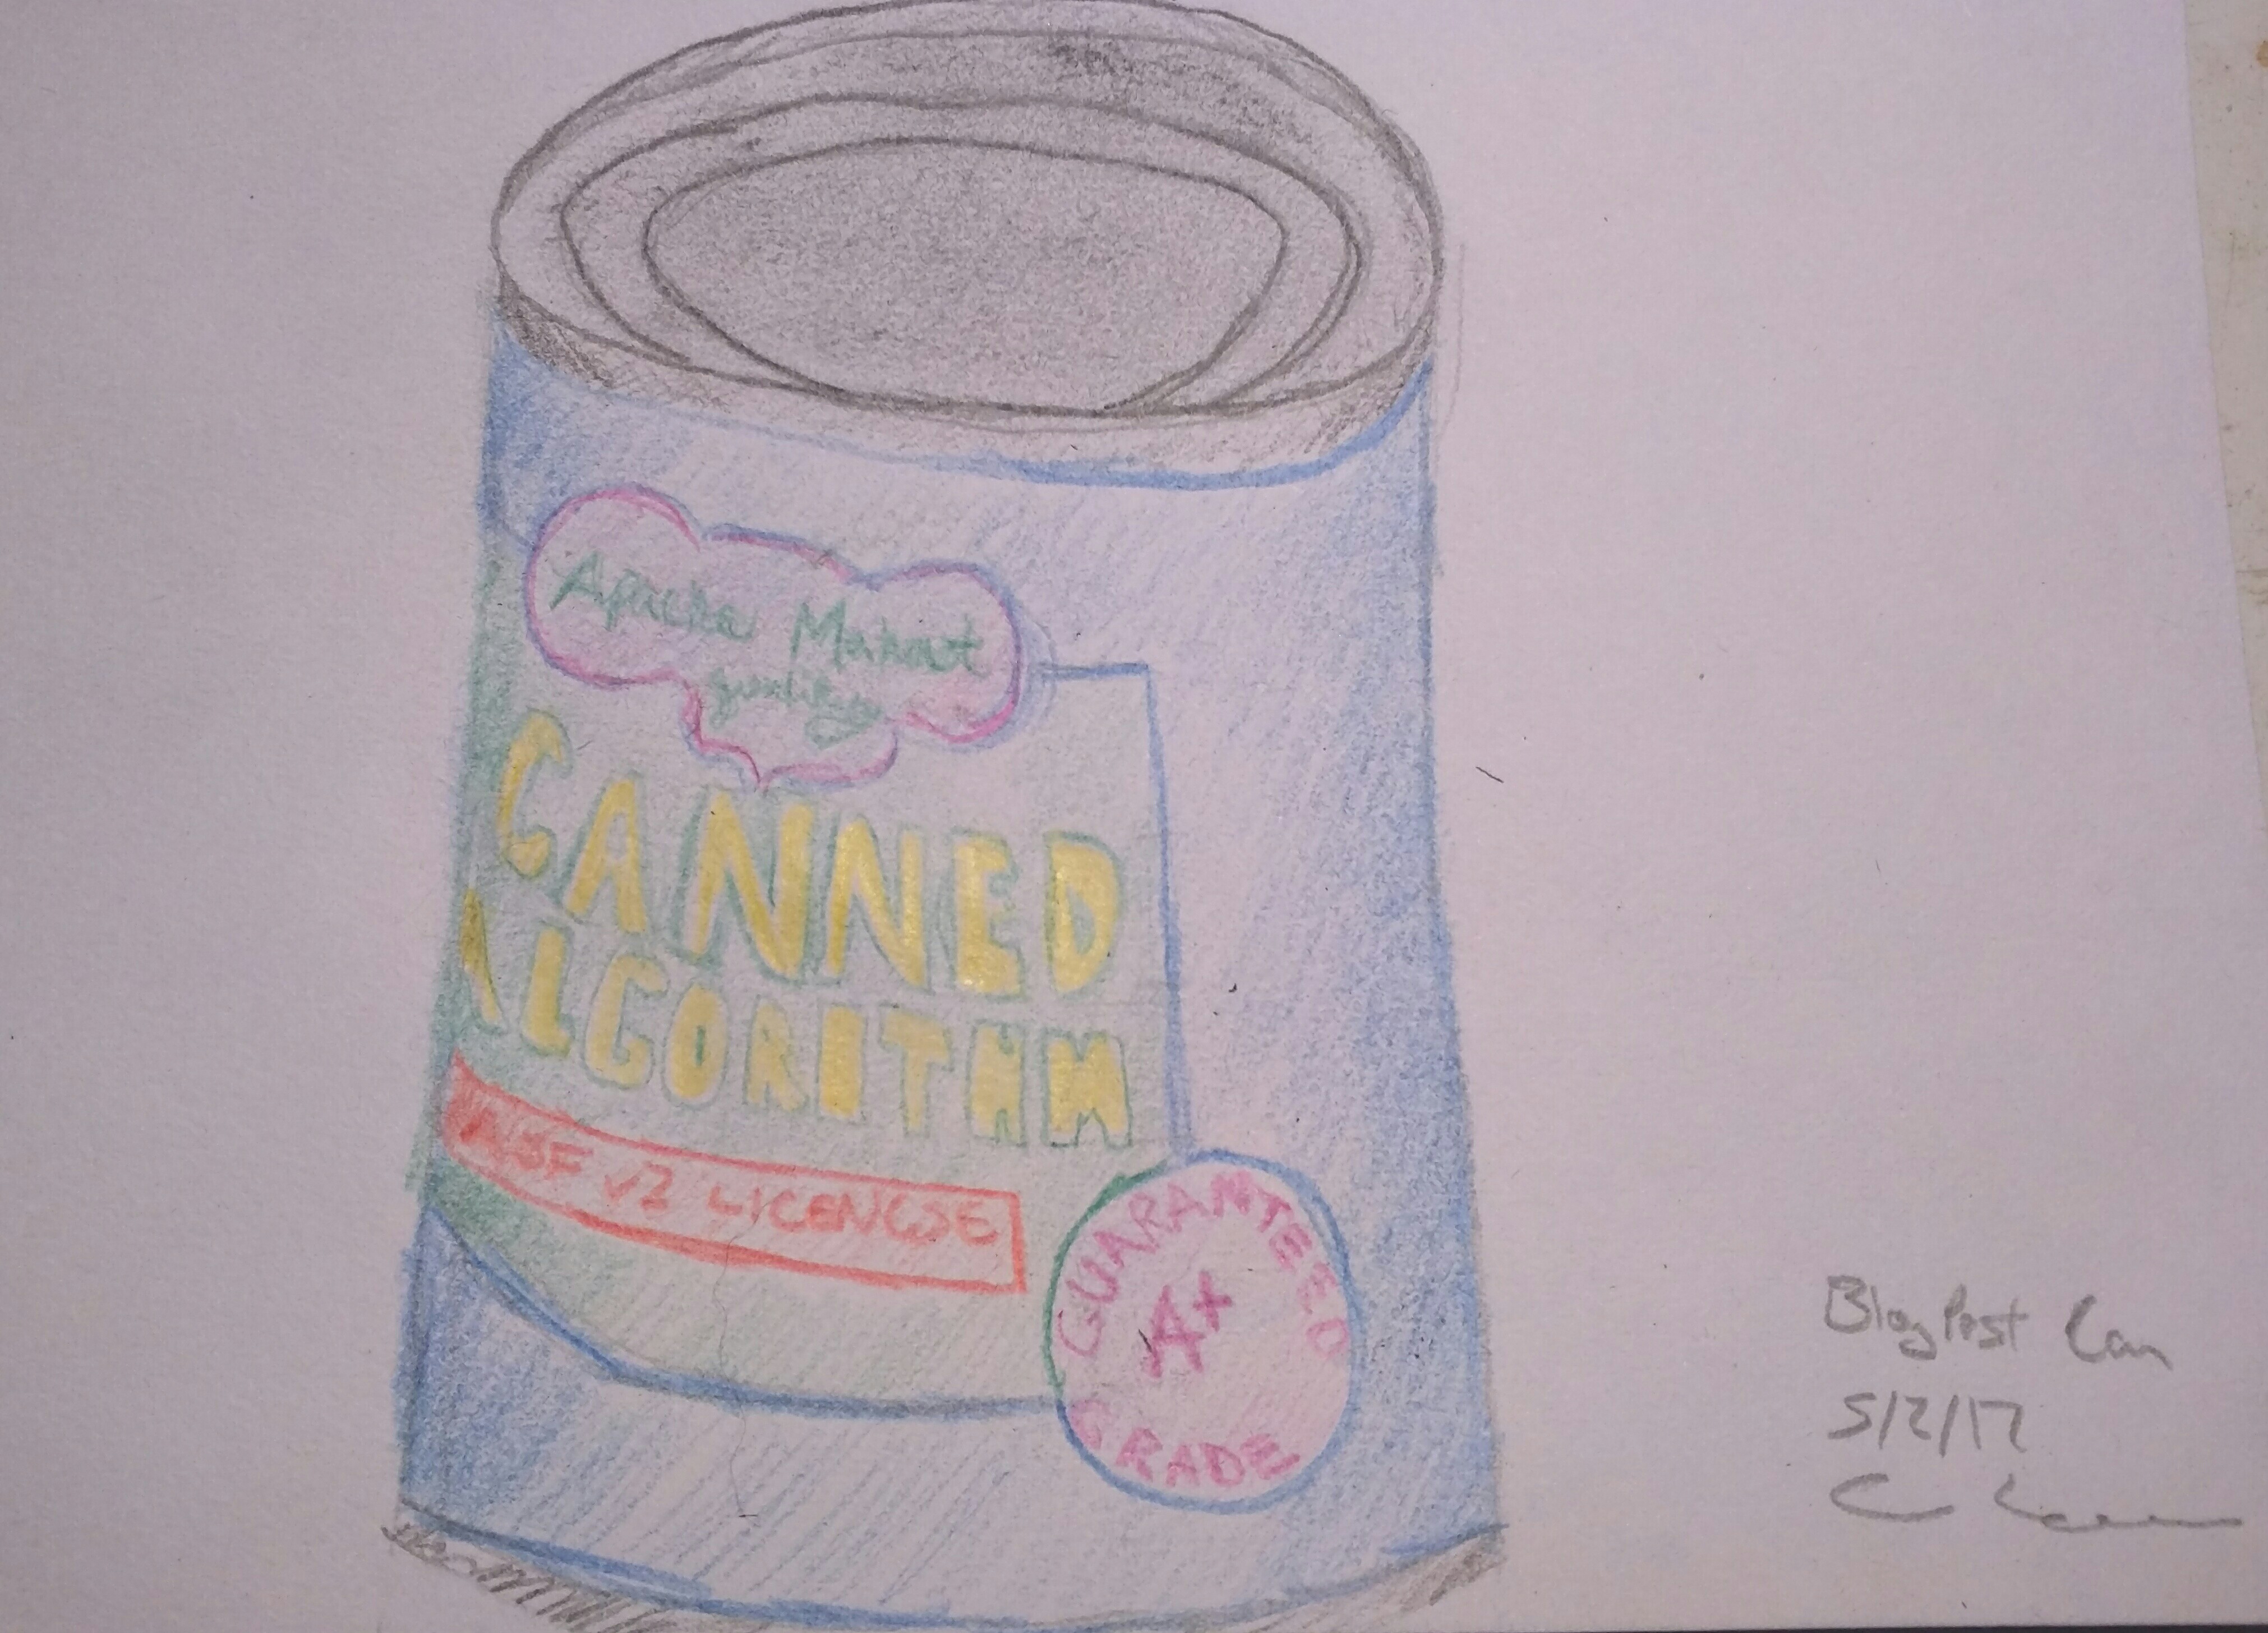 Apache Mahout
quality
CANNED
ALGORITHM
ASF v2 LICENCSE
GUARANTEED
A+
GRADE
Blog Post Can
5/2/17